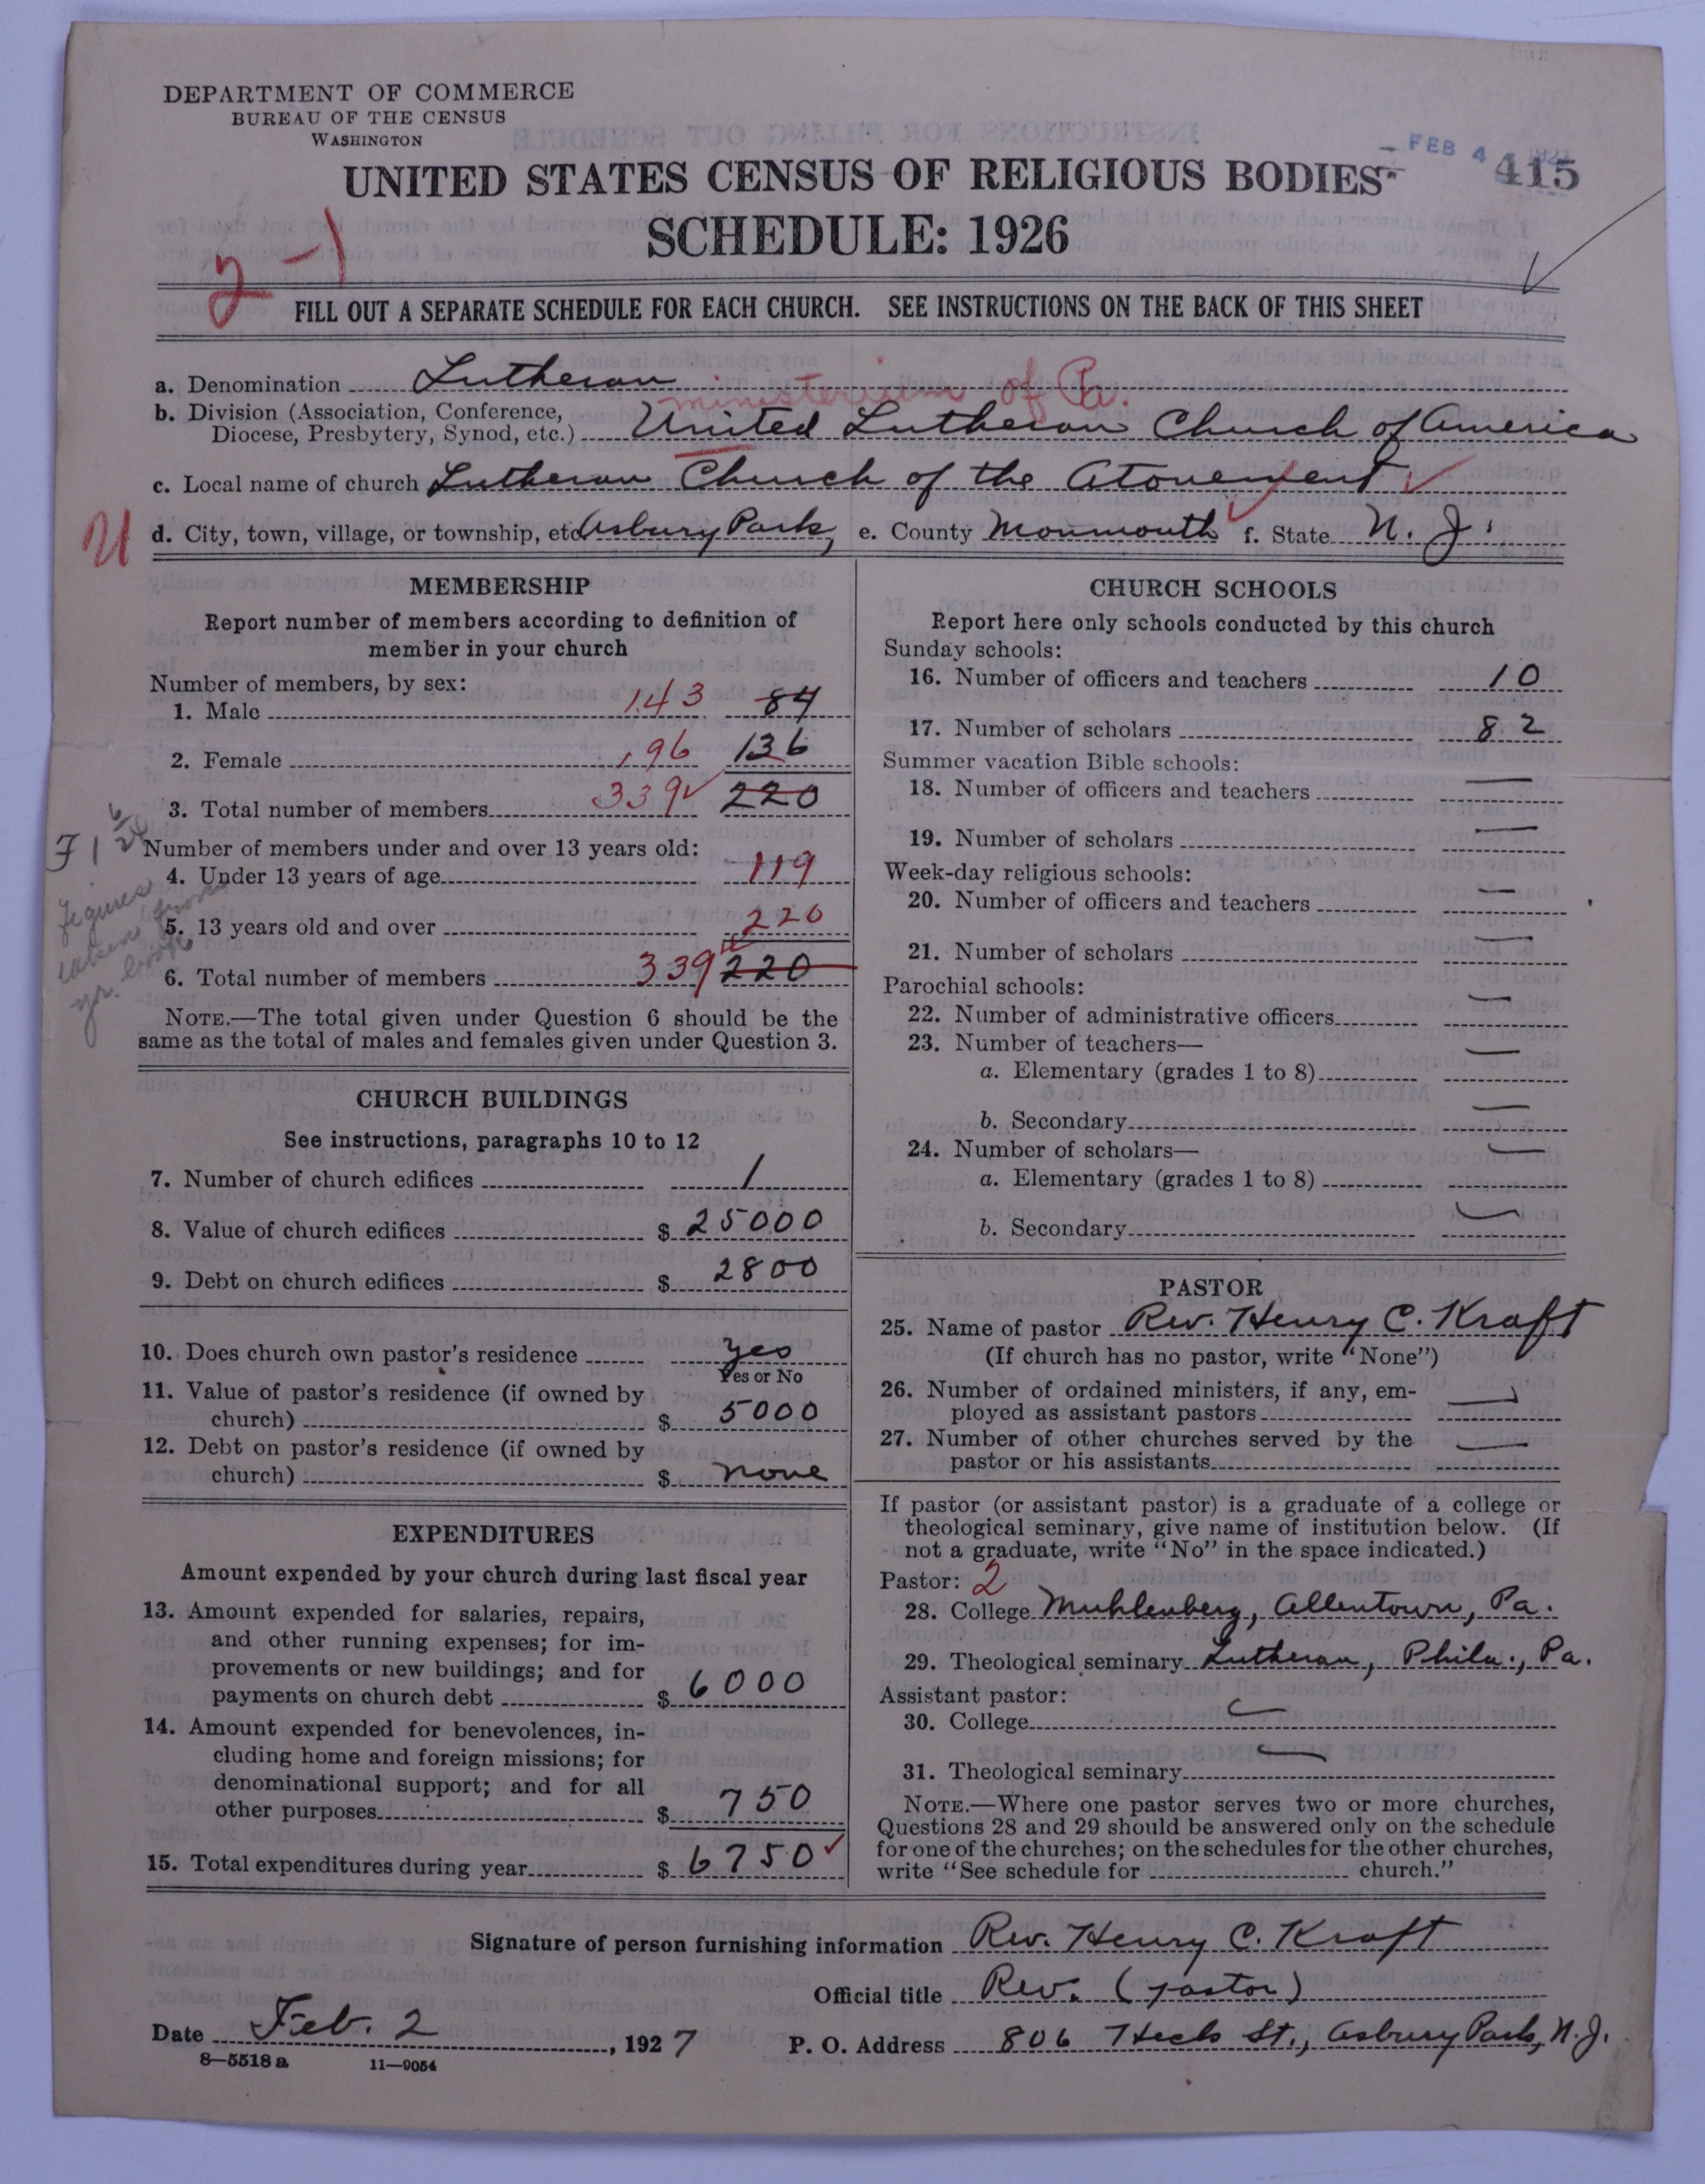 DEPARTMENT OF COMMERCE
BUREAU OF THE CENSUS
WASHINGTON
FEB 4 1927
415
UNITED STATES CENSUS OF RELIGIOUS BODIES
SCHEDULE: 1926
2-1
FILL OUT A SEPARATE SCHEDULE FOR EACH CHURCH. SEE INSTRUCTIONS ON THE BACK OF THIS SHEET
a. Denomination Lutheran
ministerium of Pa.
b. Division (Association, Conference,
Diocese, Presbytery, Synod, etc.) United Lutheran Church of America
c. Local name of church Lutheran Church of the Atonement
U
d. City, town, village, or township, etc. Asbury Park, e. County Monmouth f. State N. J.
MEMBERSHIP
Report number of members according to definition of
member in your church
Number of members, by sex:
1. Male 143 84
2. Female 196 136
3. Total number of members 339 220
Number of members under and over 13 years old:
4. Under 13 years of age 119
5. 13 years old and over 220
6. Total number of members 339 220
figures
taken from
yr. book
NOTE.—The total given under Question 6 should be the
same as the total of males and females given under Question 3.
CHURCH BUILDINGS
See instructions, paragraphs 10 to 12
7. Number of church edifices 1
8. Value of church edifices $ 25000
9. Debt on church edifices $ 2800
10. Does church own pastor's residence yes
Yes or No
11. Value of pastor's residence (if owned by
church) $ 5000
12. Debt on pastor's residence (if owned by
church) $ none
EXPENDITURES
Amount expended by your church during last fiscal year
13. Amount expended for salaries, repairs,
and other running expenses; for im-
provements or new buildings; and for
payments on church debt $ 6000
14. Amount expended for benevolences, in-
cluding home and foreign missions; for
denominational support; and for all
other purposes $ 750
15. Total expenditures during year $ 6750
CHURCH SCHOOLS
Report here only schools conducted by this church
Sunday schools:
16. Number of officers and teachers 10
17. Number of scholars 82
Summer vacation Bible schools:
18. Number of officers and teachers —
19. Number of scholars —
Week-day religious schools:
20. Number of officers and teachers —
21. Number of scholars —
Parochial schools:
22. Number of administrative officers —
23. Number of teachers—
a. Elementary (grades 1 to 8) —
b. Secondary —
24. Number of scholars—
a. Elementary (grades 1 to 8) —
b. Secondary —
PASTOR
25. Name of pastor Rev. Henry C. Kraft
(If church has no pastor, write "None")
26. Number of ordained ministers, if any, em-
ployed as assistant pastors —
27. Number of other churches served by the
pastor or his assistants —
If pastor (or assistant pastor) is a graduate of a college or
theological seminary, give name of institution below. (If
not a graduate, write "No" in the space indicated.)
Pastor: 2
28. College Muhlenberg, Allentown, Pa.
29. Theological seminary Lutheran, Phila., Pa.
Assistant pastor:
30. College —
31. Theological seminary —
NOTE.—Where one pastor serves two or more churches,
Questions 28 and 29 should be answered only on the schedule
for one of the churches; on the schedules for the other churches,
write "See schedule for church."
Signature of person furnishing information Rev. Henry C. Kraft
Official title Rev. (Pastor)
Date Feb. 2, 1927 P. O. Address 806 Heck St., Asbury Park, N. J.
8—5518 a 11—9054